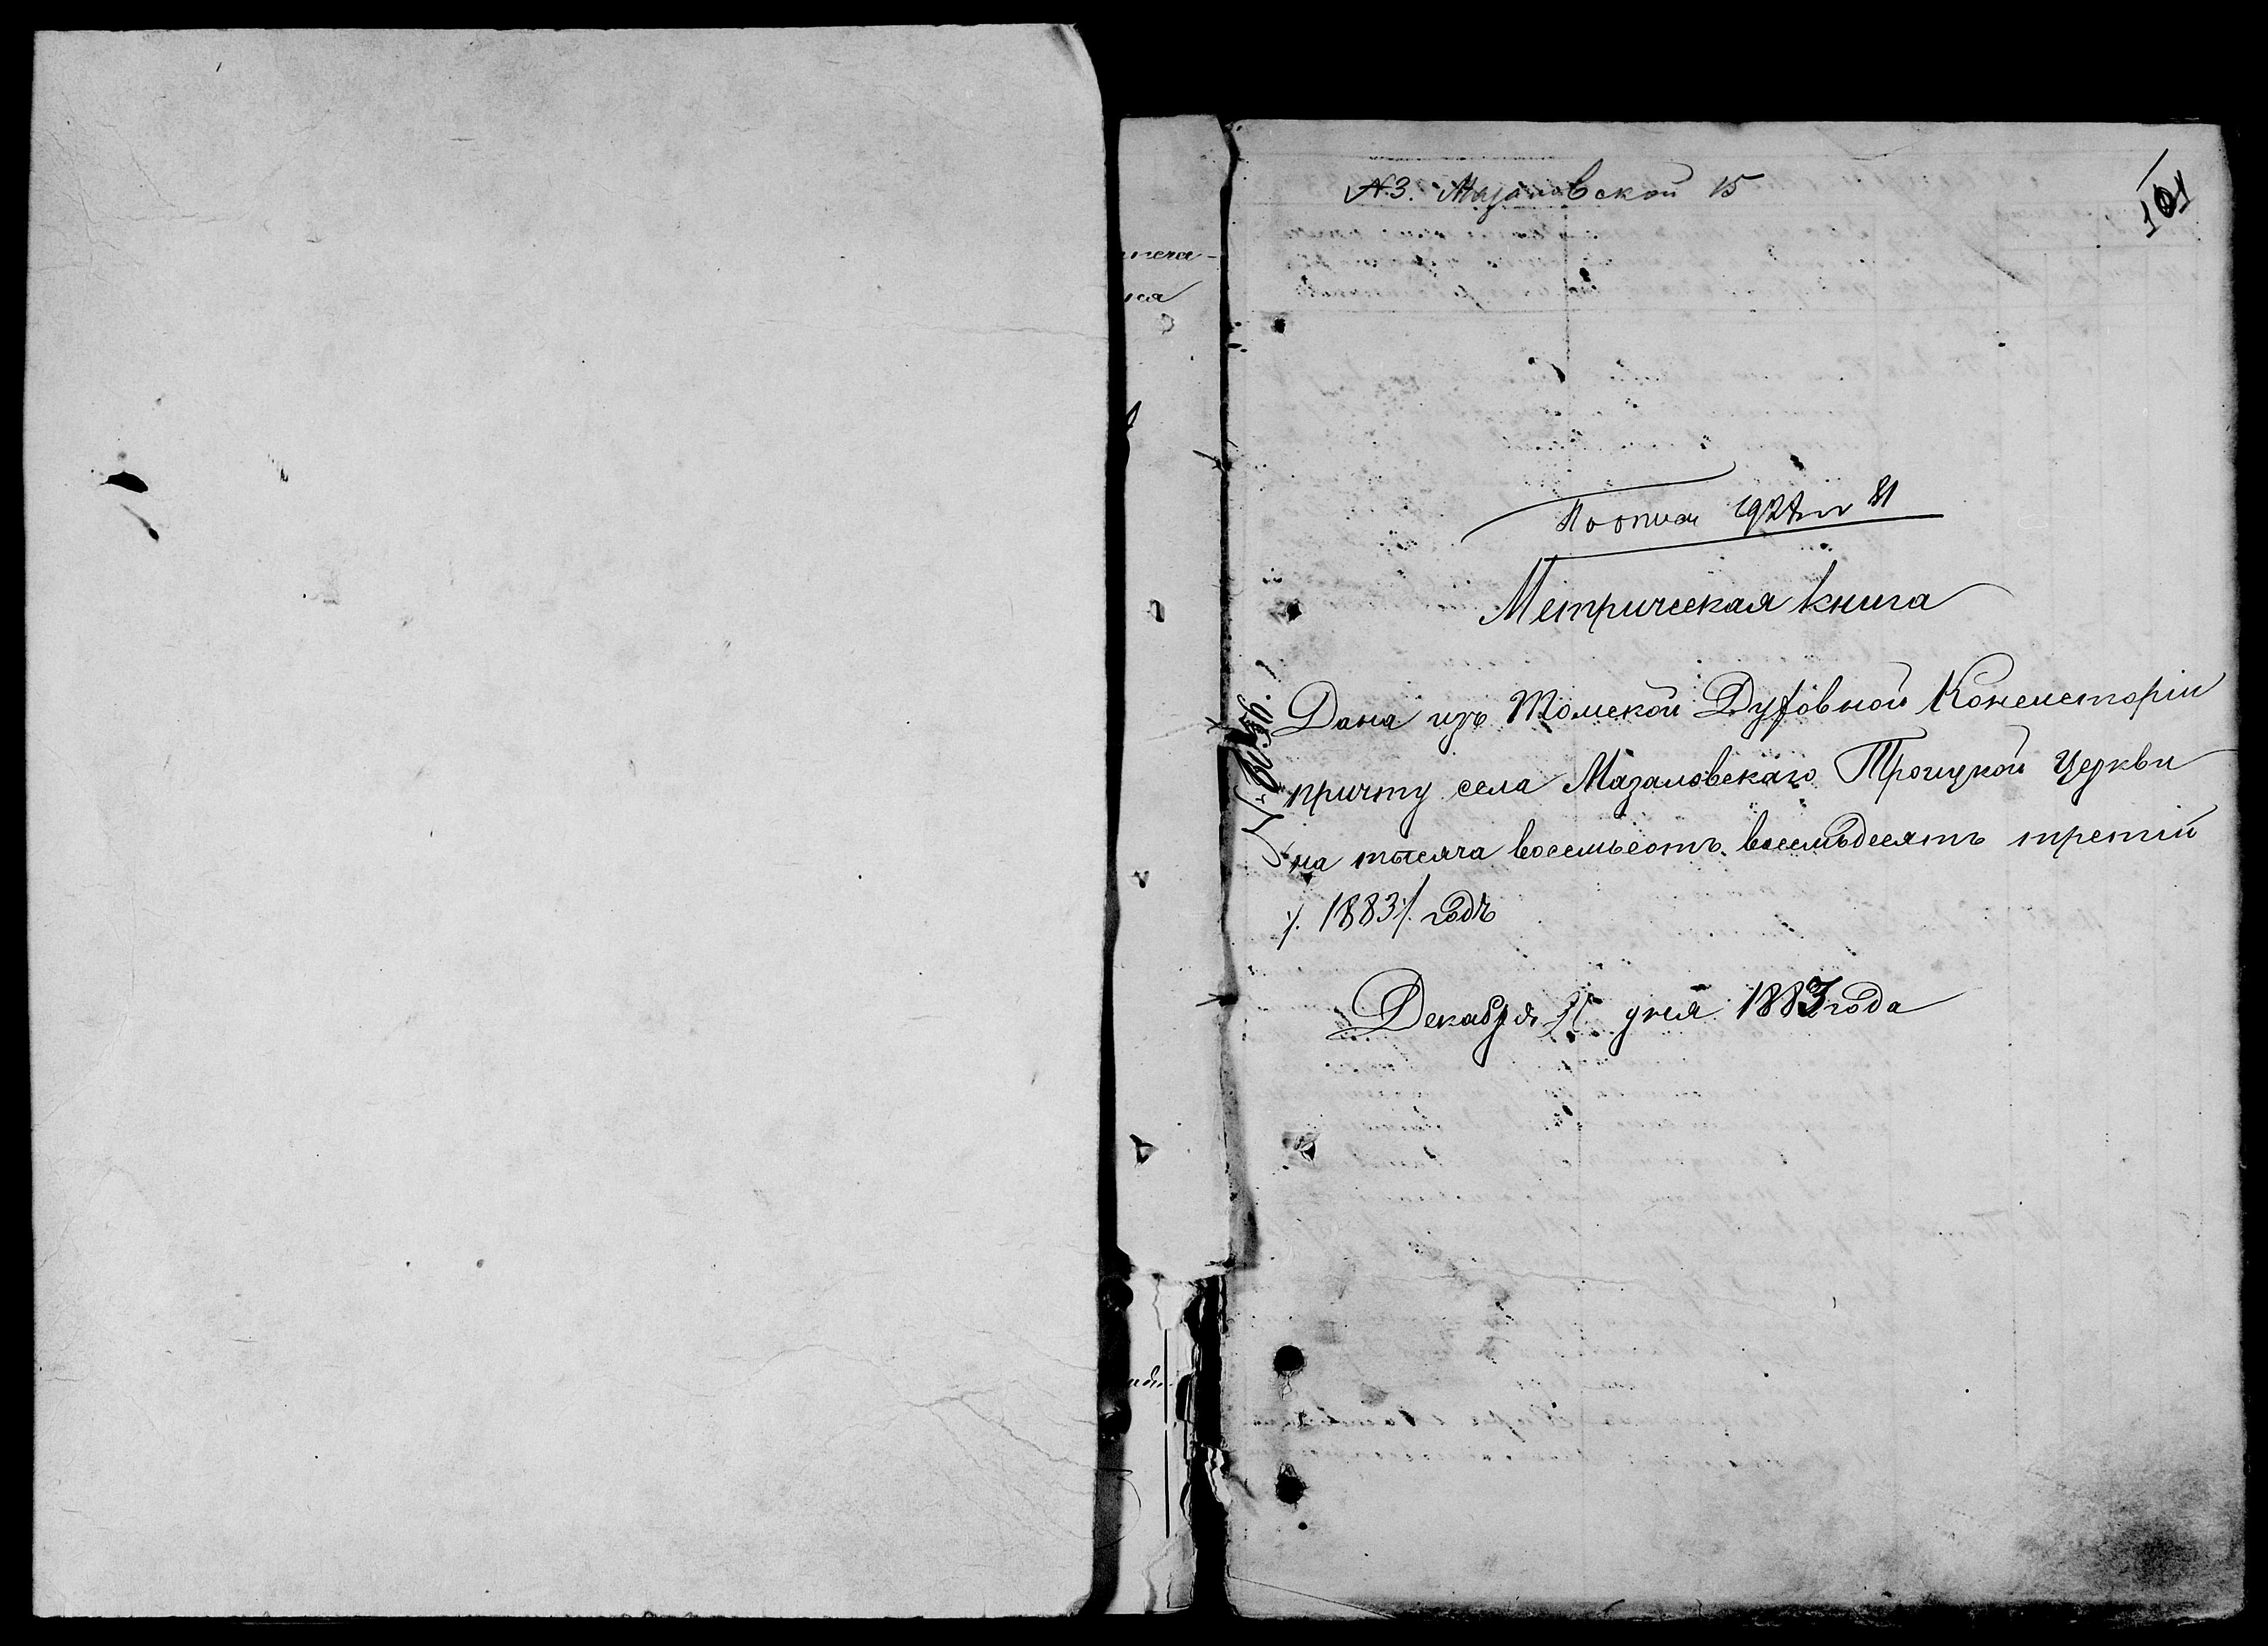 № 3. Мазаловской 15
101
По описи 1927 г. № 81
Метрическая книга
Дана изъ Томской Духовной Консисторіи
причту села Мазаловскаго Троицкой Церкви
на тысяча восемьсотъ восемьдесятъ третій
/. 1883 ./ годъ
Декабря дня 1883 года